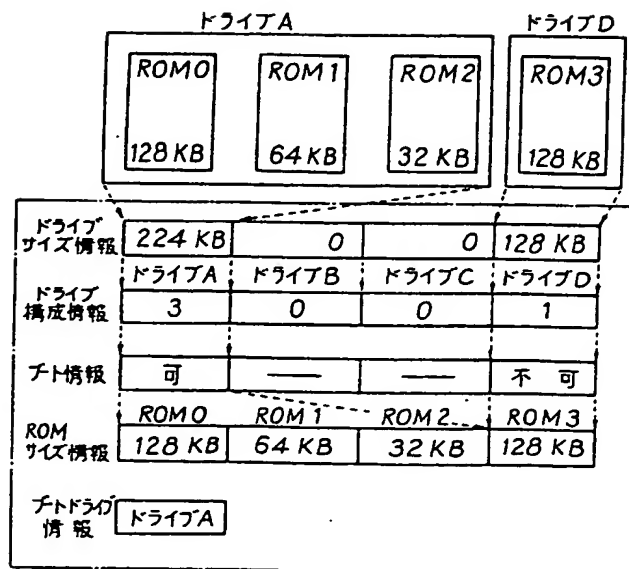 ドライブA
ドライブD
ROM0
ROM1
ROM2
ROM3
128 KB
64 KB
32 KB
128 KB
ドライブ
サイズ情報
224 KB
0
0
128 KB
ドライブA
ドライブB
ドライブC
ドライブD
ドライブ
構成情報
3
0
0
1
ブート情報
可
——
——
不 可
ROM0
ROM1
ROM2
ROM3
ROM
サイズ情報
128 KB
64 KB
32 KB
128 KB
ブートドライブ
情 報
ドライブA